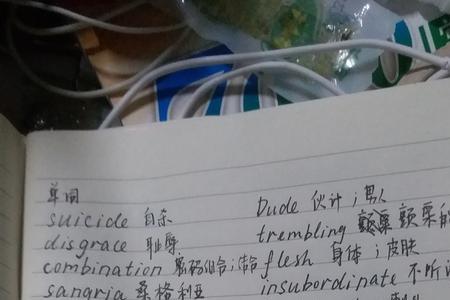 单词
suicide 自杀
disgrace 耻辱
combination 密码组合;结合
sangria 桑格利亚
Dude 伙计;男人
trembling 颤栗的
flesh 身体;皮肤
insubordinate 不听